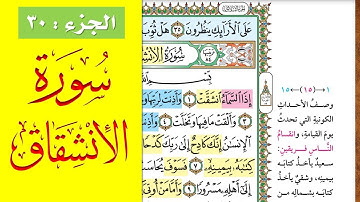 الجزء : ٣٠
سُورَة
الإنْشِقَاق
عَلَى الْأَرَائِكِ يَنْظُرُونَ ٣٥ هَلْ ثُوِّبَ
سُورَةُ الْإِنْشِقَاقِ
إِذَا السَّمَاءُ انْشَقَّتْ ١ وَأَذِنَتْ لِرَبِّهَا
وَأَلْقَتْ مَا فِيهَا وَتَخَلَّتْ ٤
الْإِنْسَانُ إِنَّكَ كَادِحٌ إِلَى رَبِّكَ
كِتَابَهُ بِيَمِينِهِ ٧ فَسَوْفَ يُحَاسَبُ
إِلَى أَهْلِهِ مَسْرُورًا ٩ وَأَمَّا مَنْ أُوتِيَ
١ ← (١٥) → ١٥
وصفُ الأحداثِ
الكونيةِ التي تحدثُ
يومَ القيامةِ، وانقسامُ
النَّاسِ فريقينِ:
سعيدٌ يأخذُ كتابَه
بيمينِه، وشقيٌّ يأخذُ
كتابَه بشمالِه من